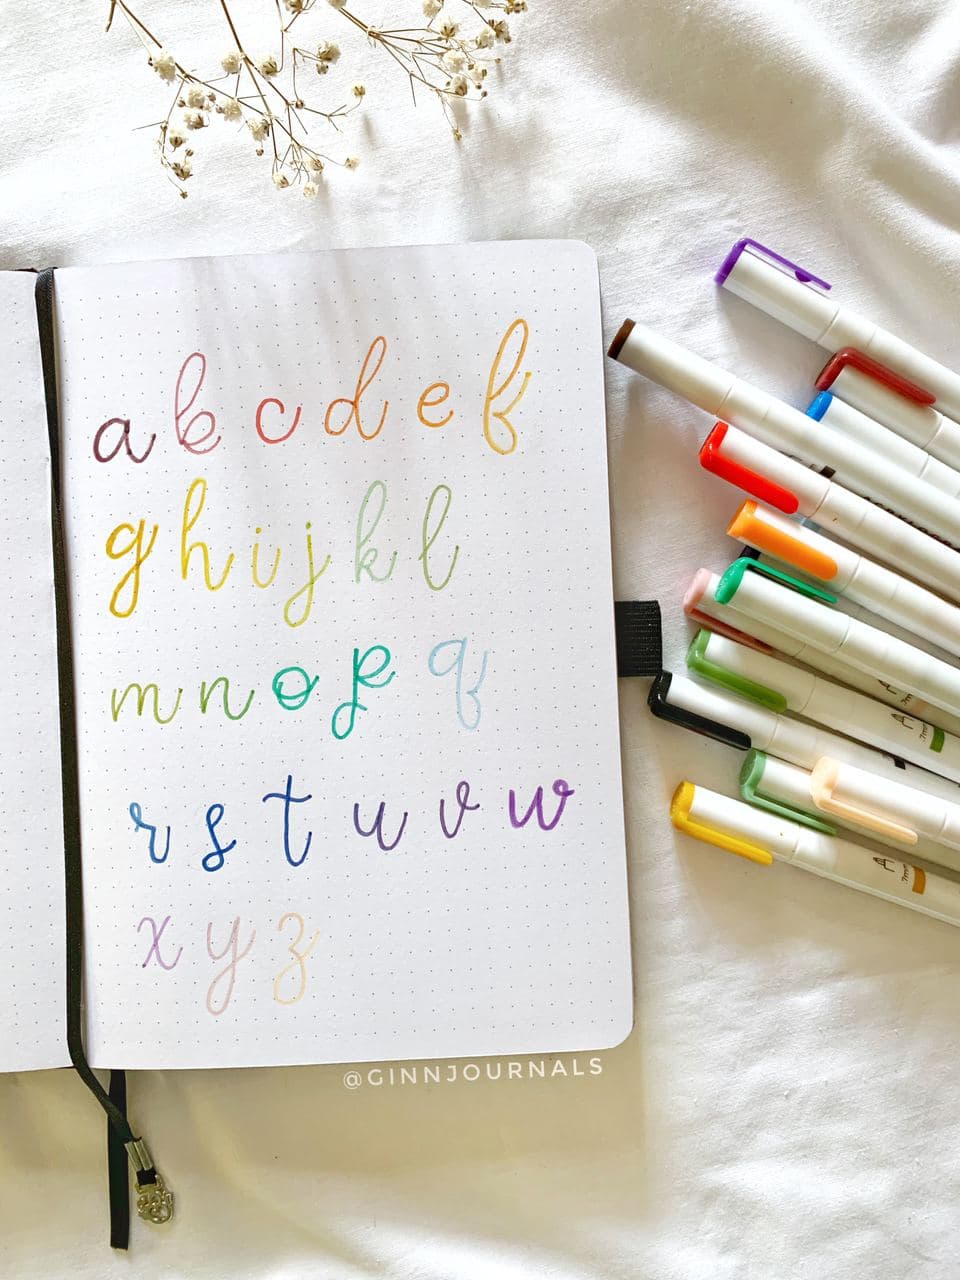 a b c d e f
g h i j k l
m n o p q
r s t u v w
x y z
@GINNJOURNALS